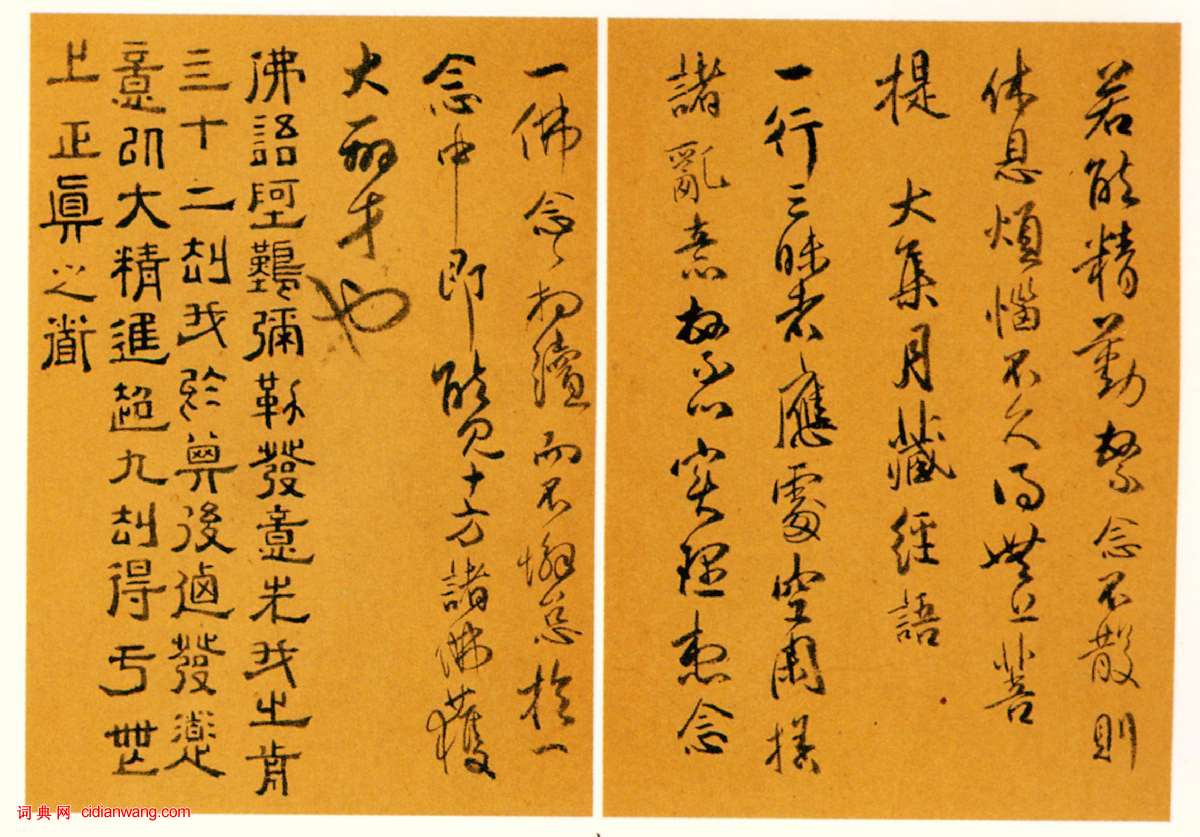 若能精勤繫念不散則
休息煩惱不久得無上菩
提 大集月藏經語
一行三昧者應處空閑捨
諸亂意繫心實理想念
一佛念々相續而不懈怠於一
念中即能見十方諸佛獲
大辯才也
佛語阿難彌勒發意先我之前
三十二劫我於其後迺發道
意以大精進超九劫得于無
上正真之道
词典网 cidianwang.com